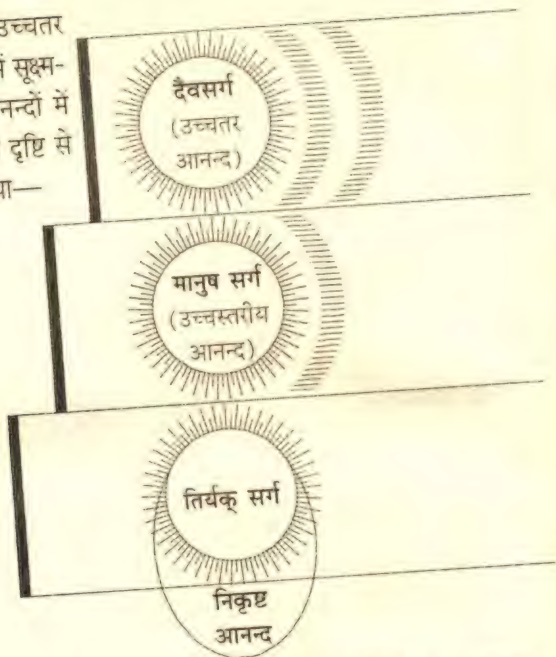 उच्चतर
में सूक्ष्म-
नन्दों में
दृष्टि से
था—
दैवसर्ग
(उच्चतर
आनन्द)
मानुष सर्ग
(उच्चस्तरीय
आनन्द)
तिर्यक् सर्ग
निकृष्ट
आनन्द